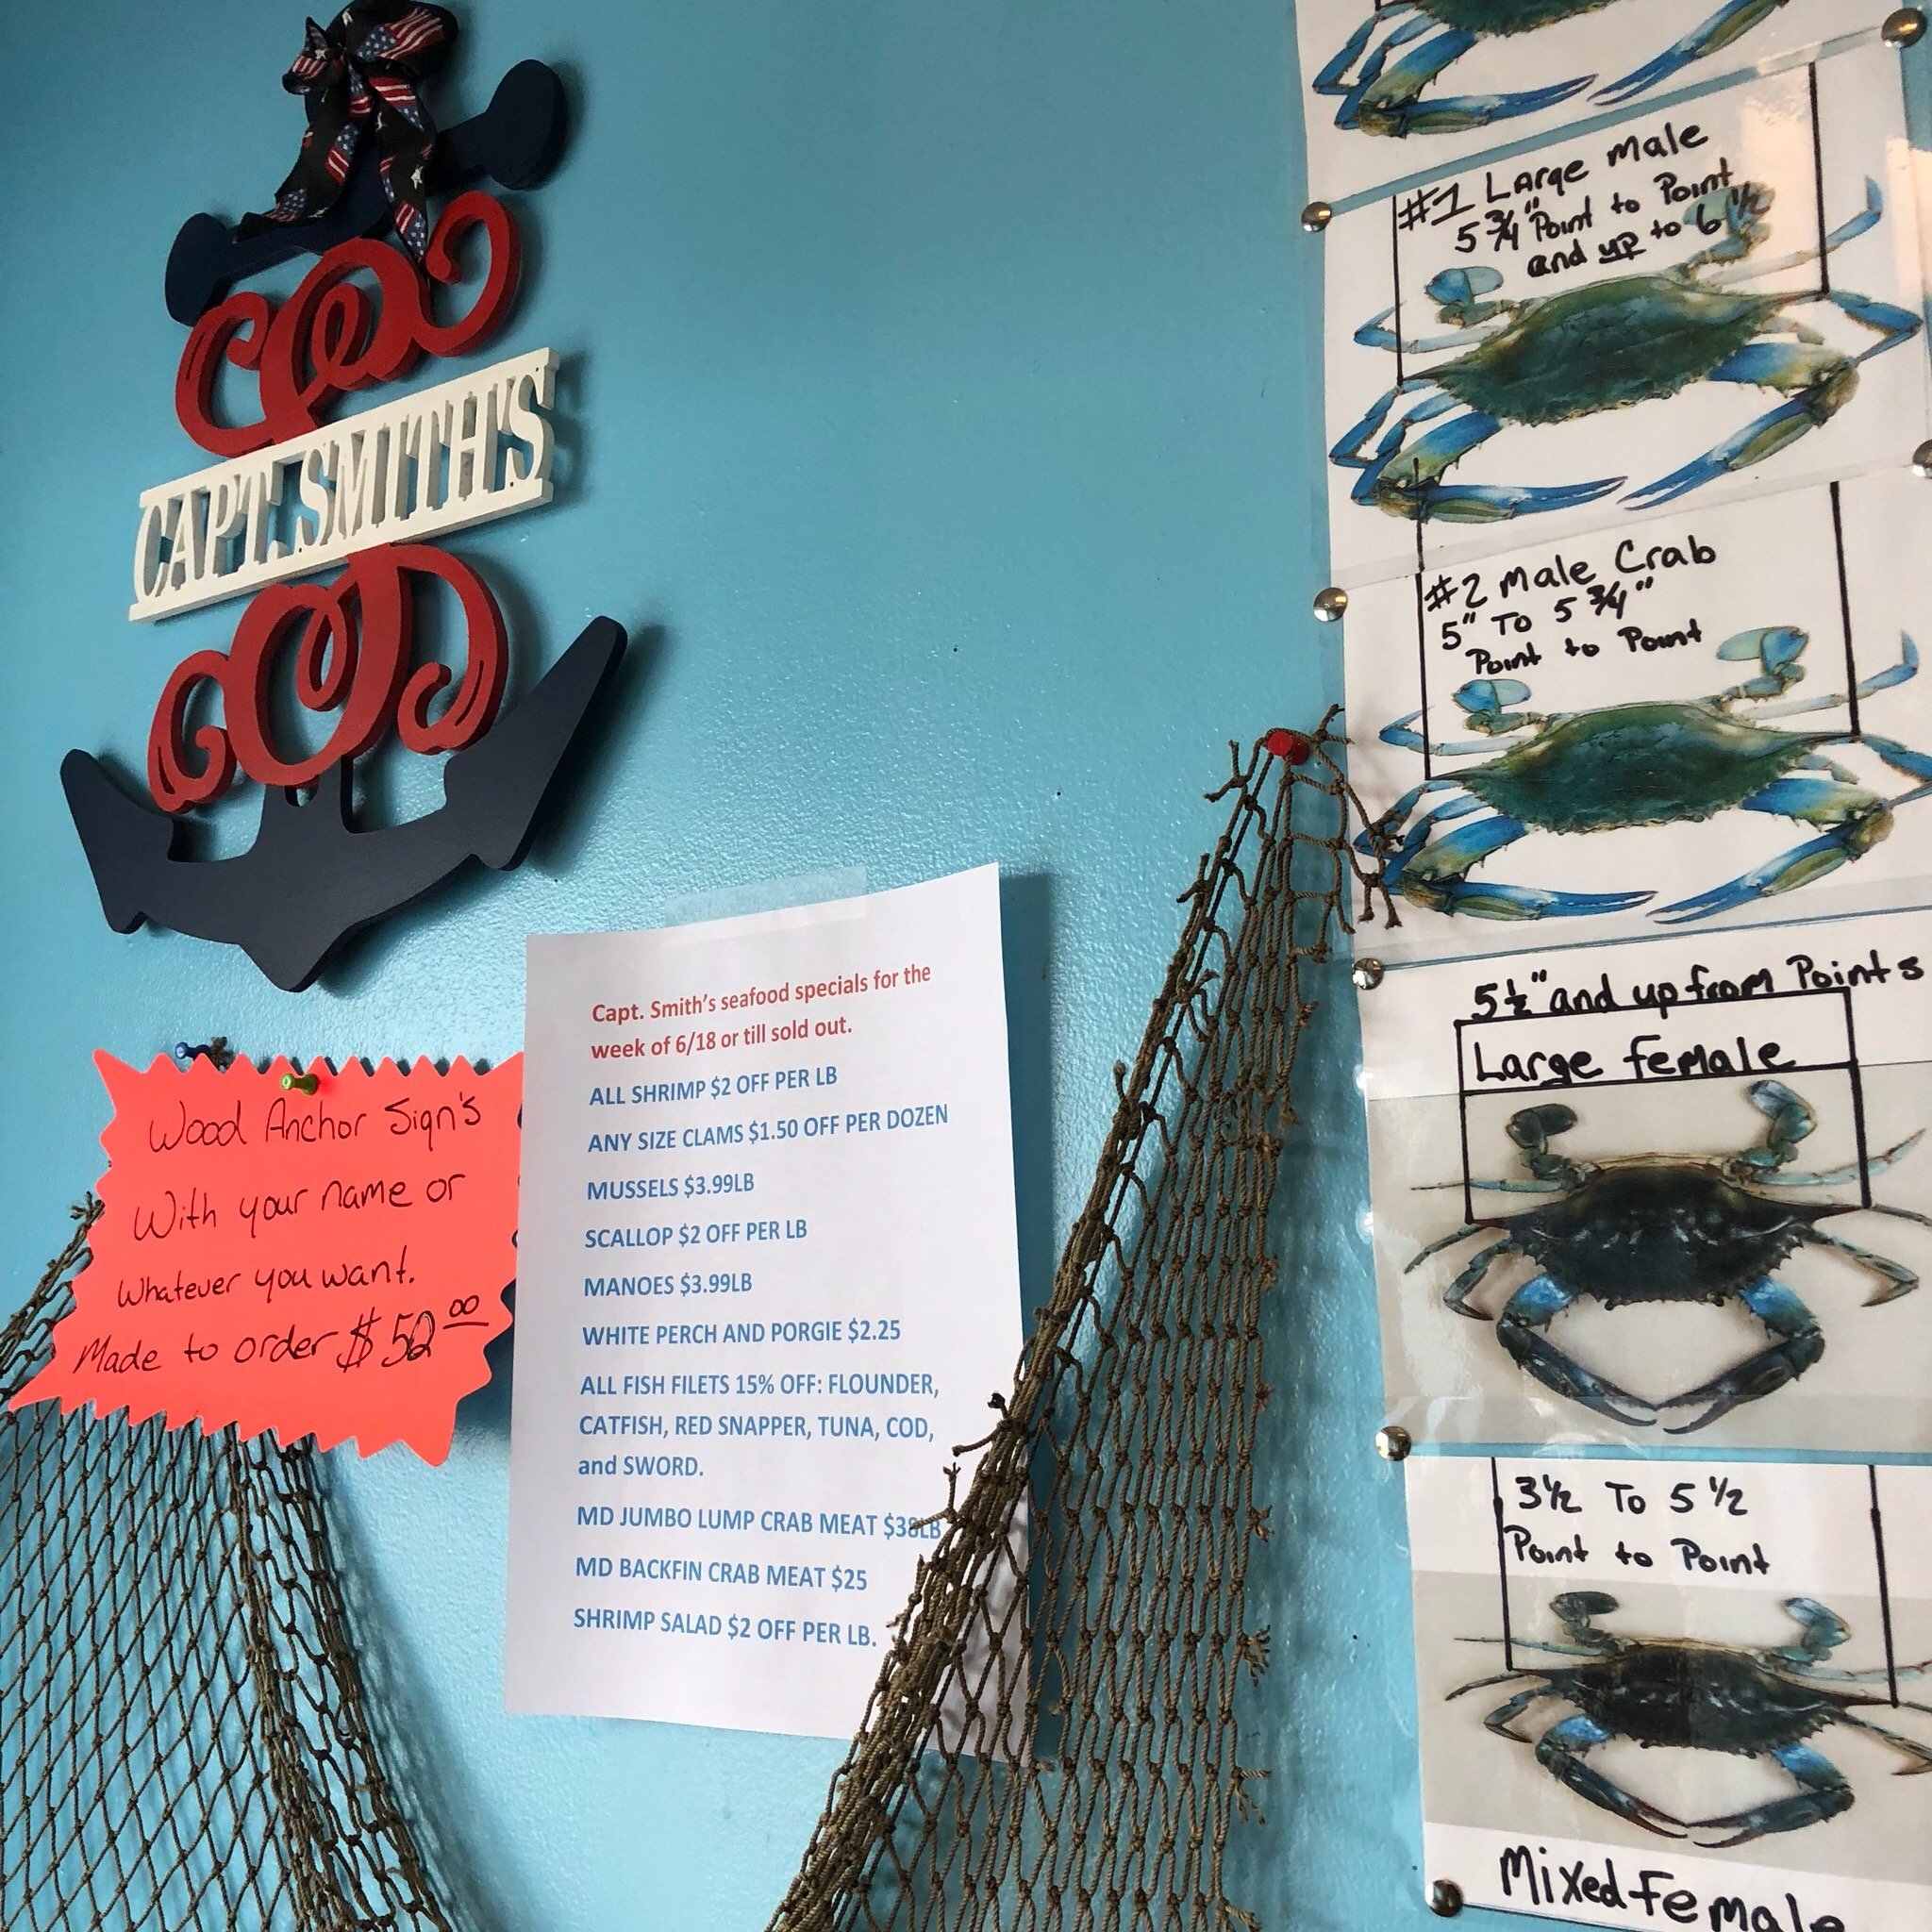 CAPT. SMITH'S
Wood Anchor Sign's
With your name or
Whatever you want.
Made to order $52.00
Capt. Smith's seafood specials for the
week of 6/18 or till sold out.
ALL SHRIMP $2 OFF PER LB
ANY SIZE CLAMS $1.50 OFF PER DOZEN
MUSSELS $3.99LB
SCALLOP $2 OFF PER LB
MANOES $3.99LB
WHITE PERCH AND PORGIE $2.25
ALL FISH FILETS 15% OFF: FLOUNDER,
CATFISH, RED SNAPPER, TUNA, COD,
and SWORD.
MD JUMBO LUMP CRAB MEAT $38LB
MD BACKFIN CRAB MEAT $25
SHRIMP SALAD $2 OFF PER LB.
#1 Large male
5 3/4" Point to Point
and up to 6 1/2
#2 male Crab
5" To 5 3/4"
Point to Point
5 1/2" and up from Points
Large female
3 1/2 To 5 1/2
Point to Point
Mixed female